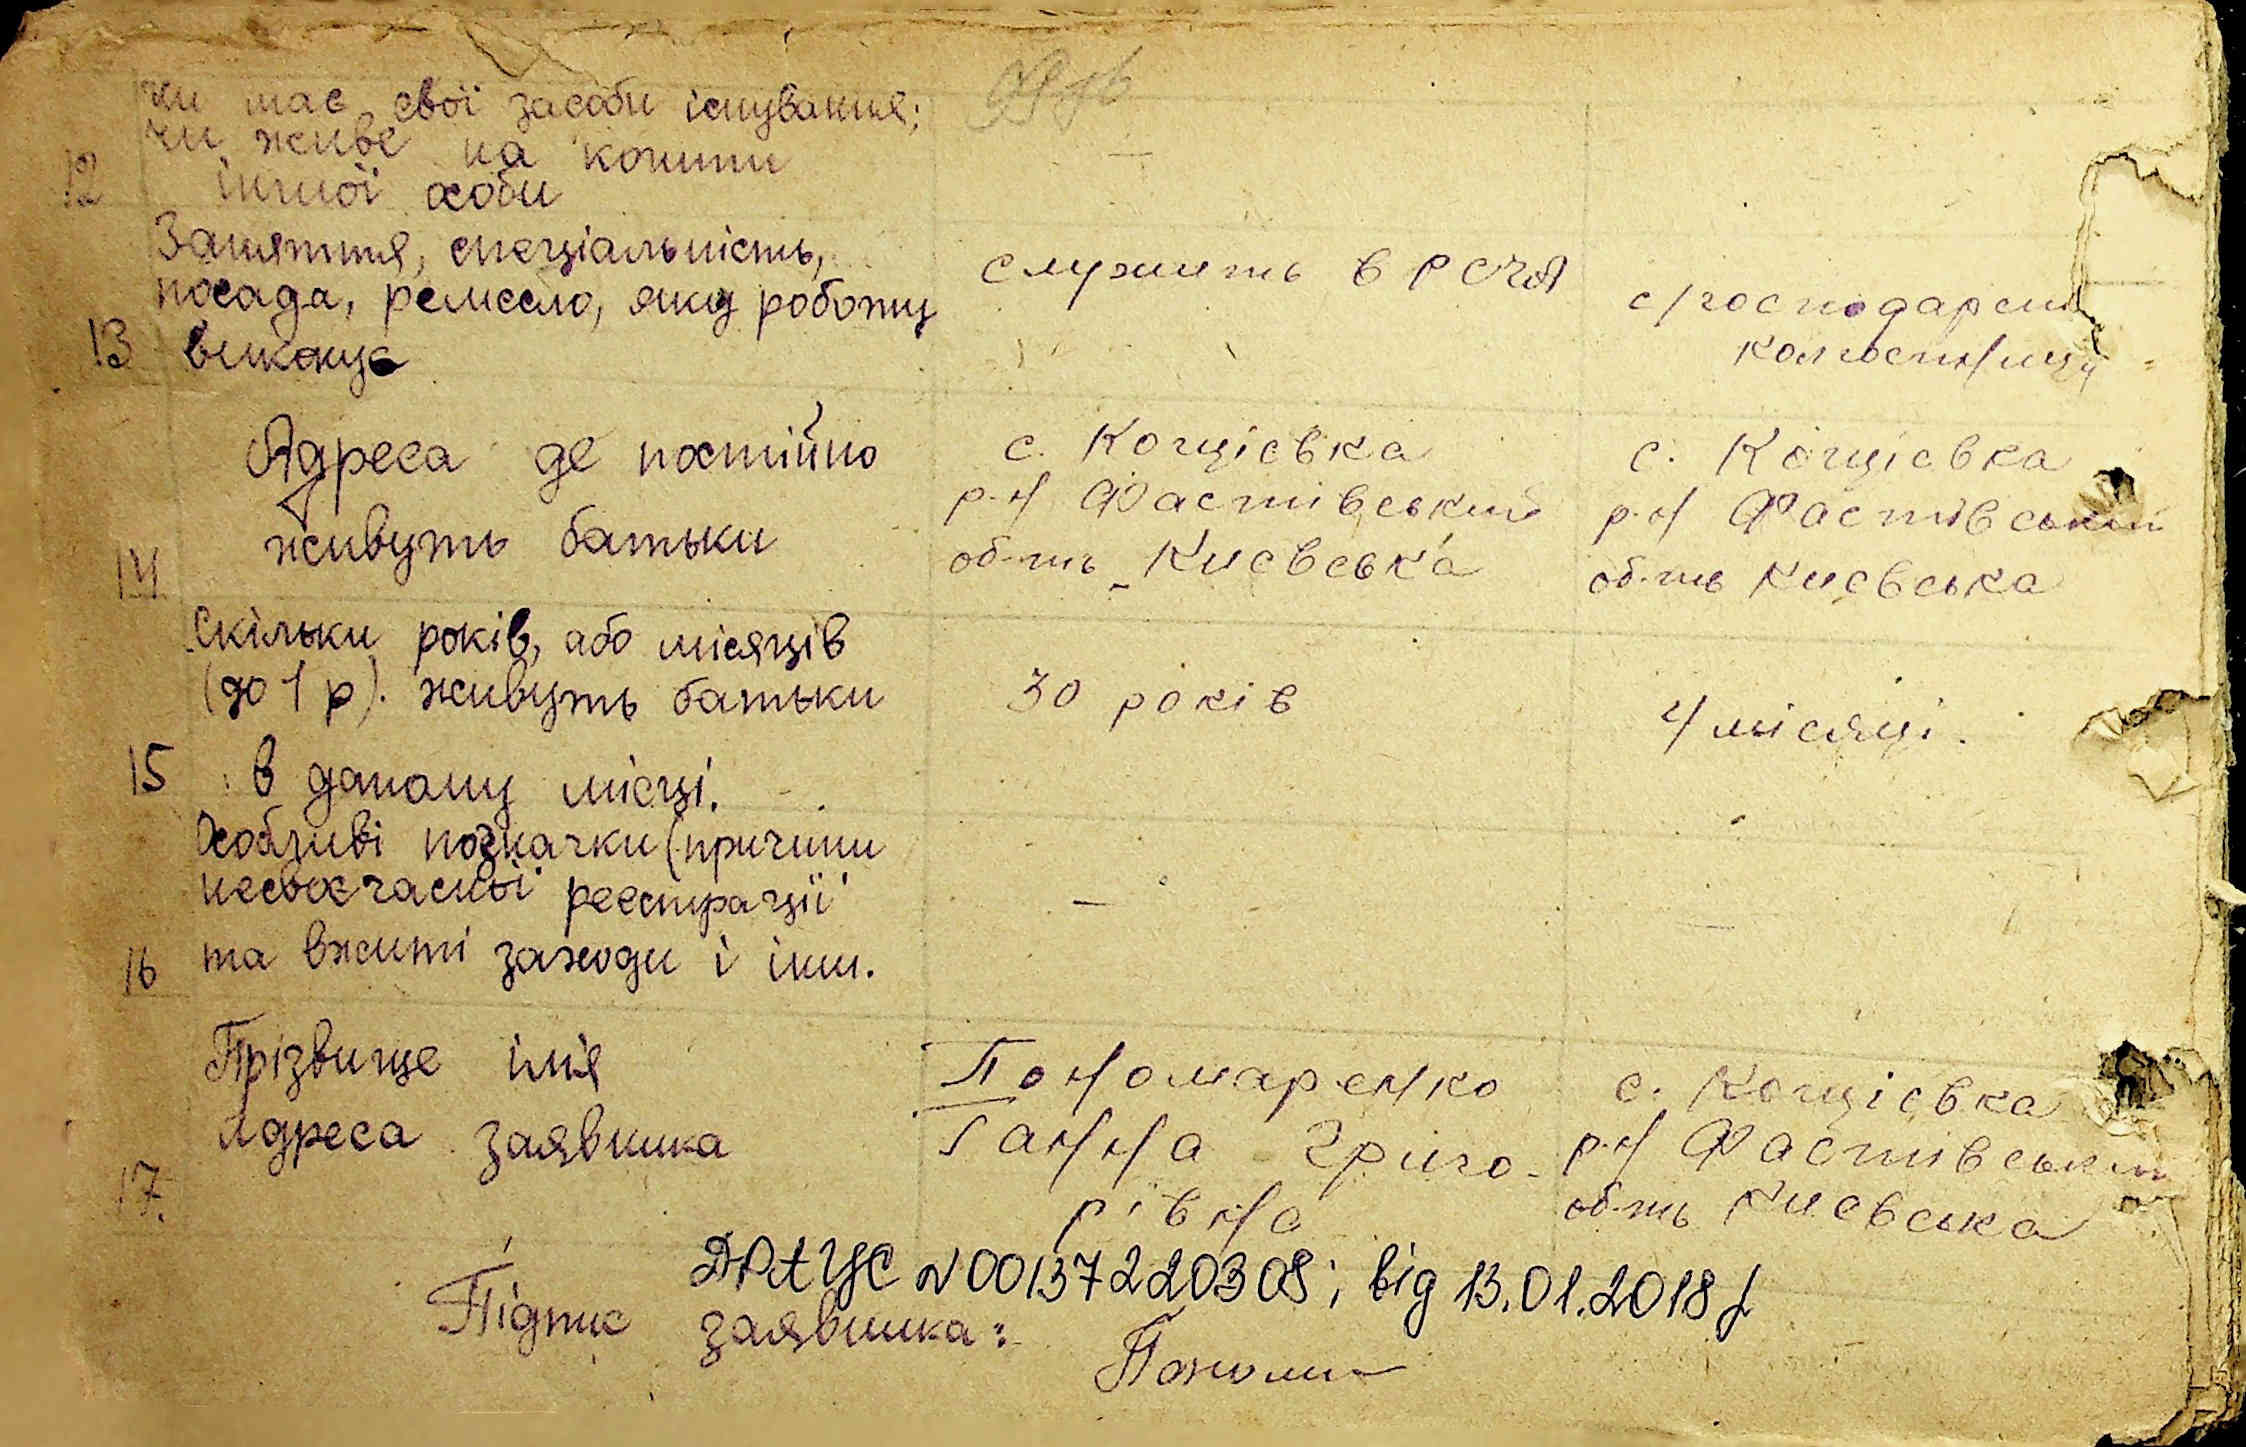 чи має свої засоби існування;
чи живе на кошти
12 іншої особи
–
Заняття, спеціальність,
посада, ремесло, яку роботу
13 виконує
служить в РСЧА
с/господарем
колгоспниця
Адреса де постійно
14 живуть батьки
с. Кощієвка
р-н Фастівський
об-ть Києвська
с. Кощієвка
р-н Фастівський
об-ть Києвська
Скільки років, або місяців
(до 1 р). живуть батьки
15 в даному місці.
30 років
4 місяці.
Особливі позначки (причини
несвоєчасної реєстрації
16 та вжиті заходи і інш.
–
–
Прізвище ім'я
Адреса заявника
17.
Пономаренко
Ганна Григо-
рівна
с. Кощієвка
р-н Фастівський
об-ть Києвська
ДРАЦС N00137220308; від 13.01.2018р
Підпис заявника:
Поном